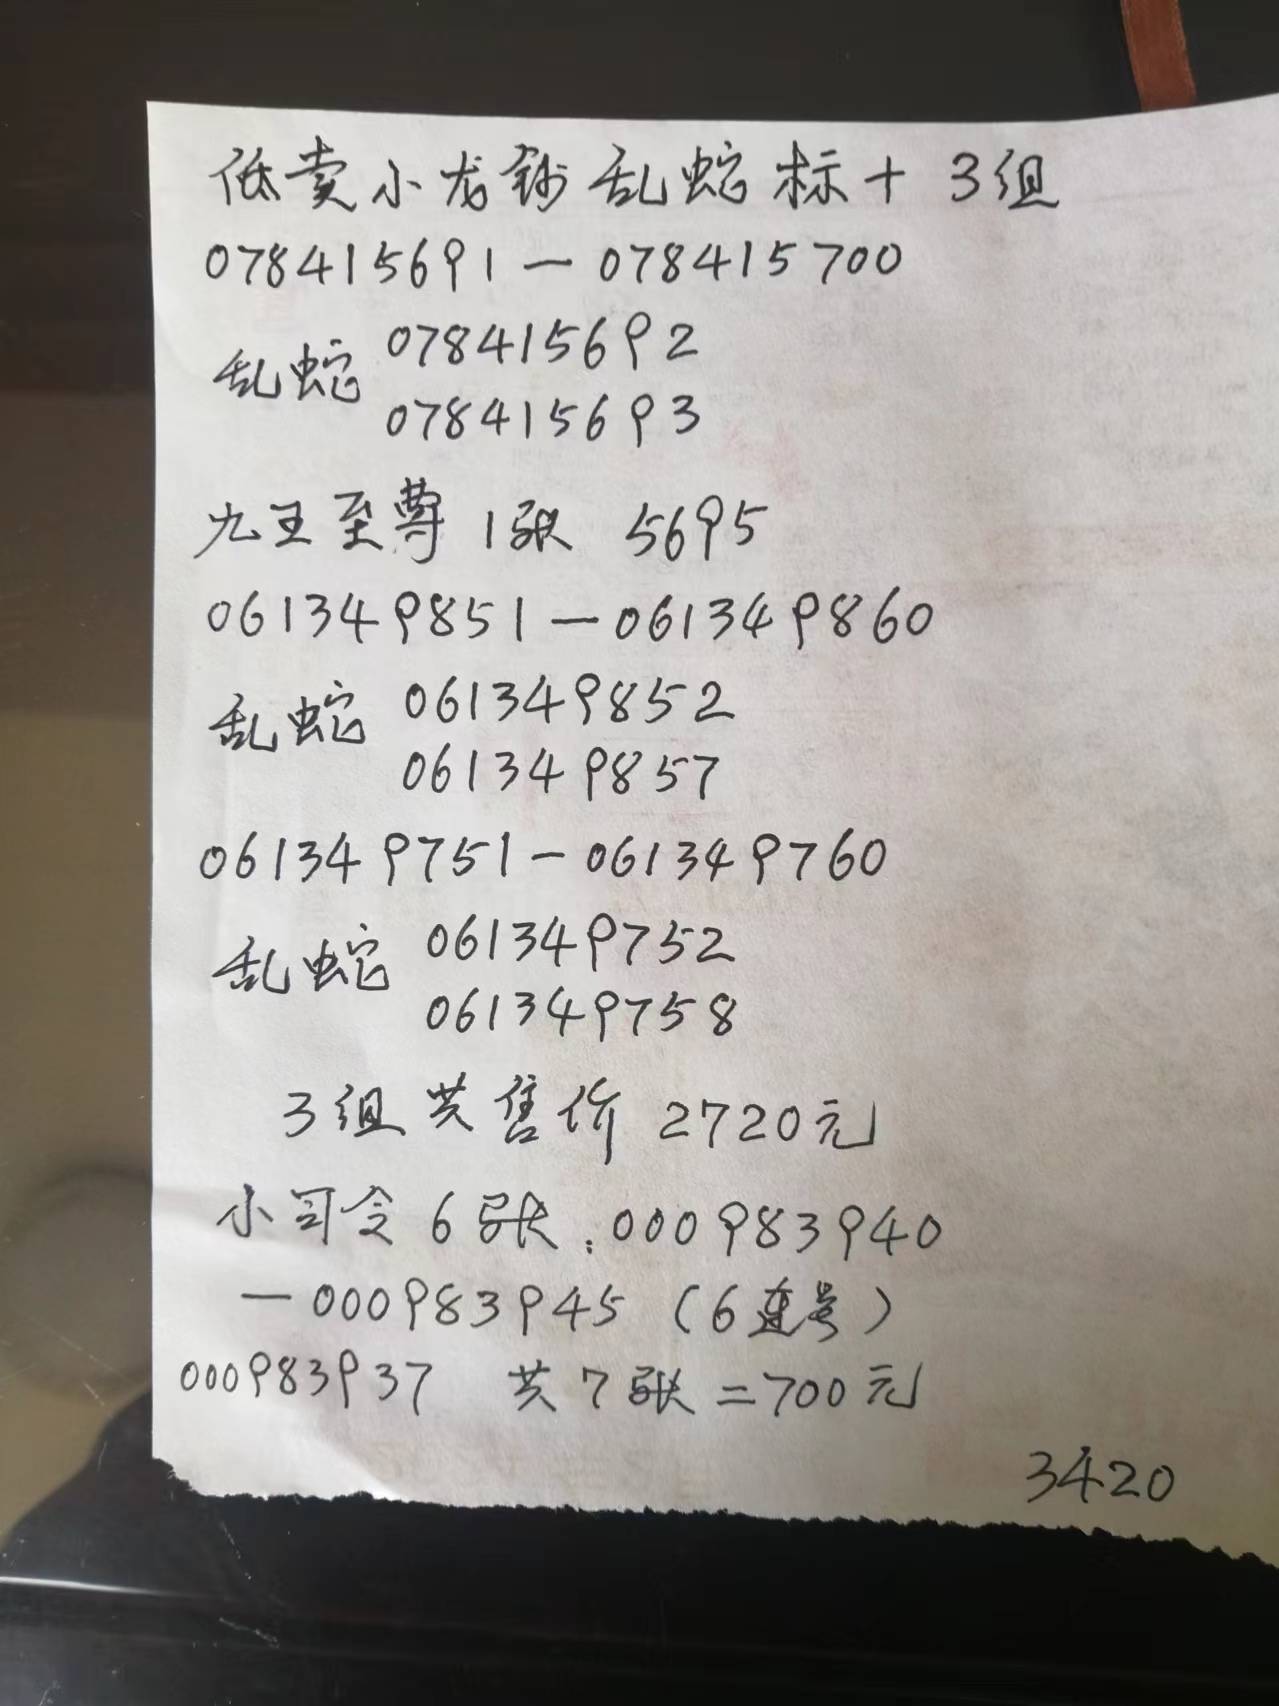 低卖小龙钞乱蛇标十 3组
078415691—078415700
乱蛇 078415692
078415693
九王至尊 1张 5695
061349851—061349860
乱蛇 061349852
061349857
061349751—061349760
乱蛇 061349752
061349758
3组共售价 2720元
小司令 6张：000983940
—000983945（6连号）
000983937 共7张=700元
3420